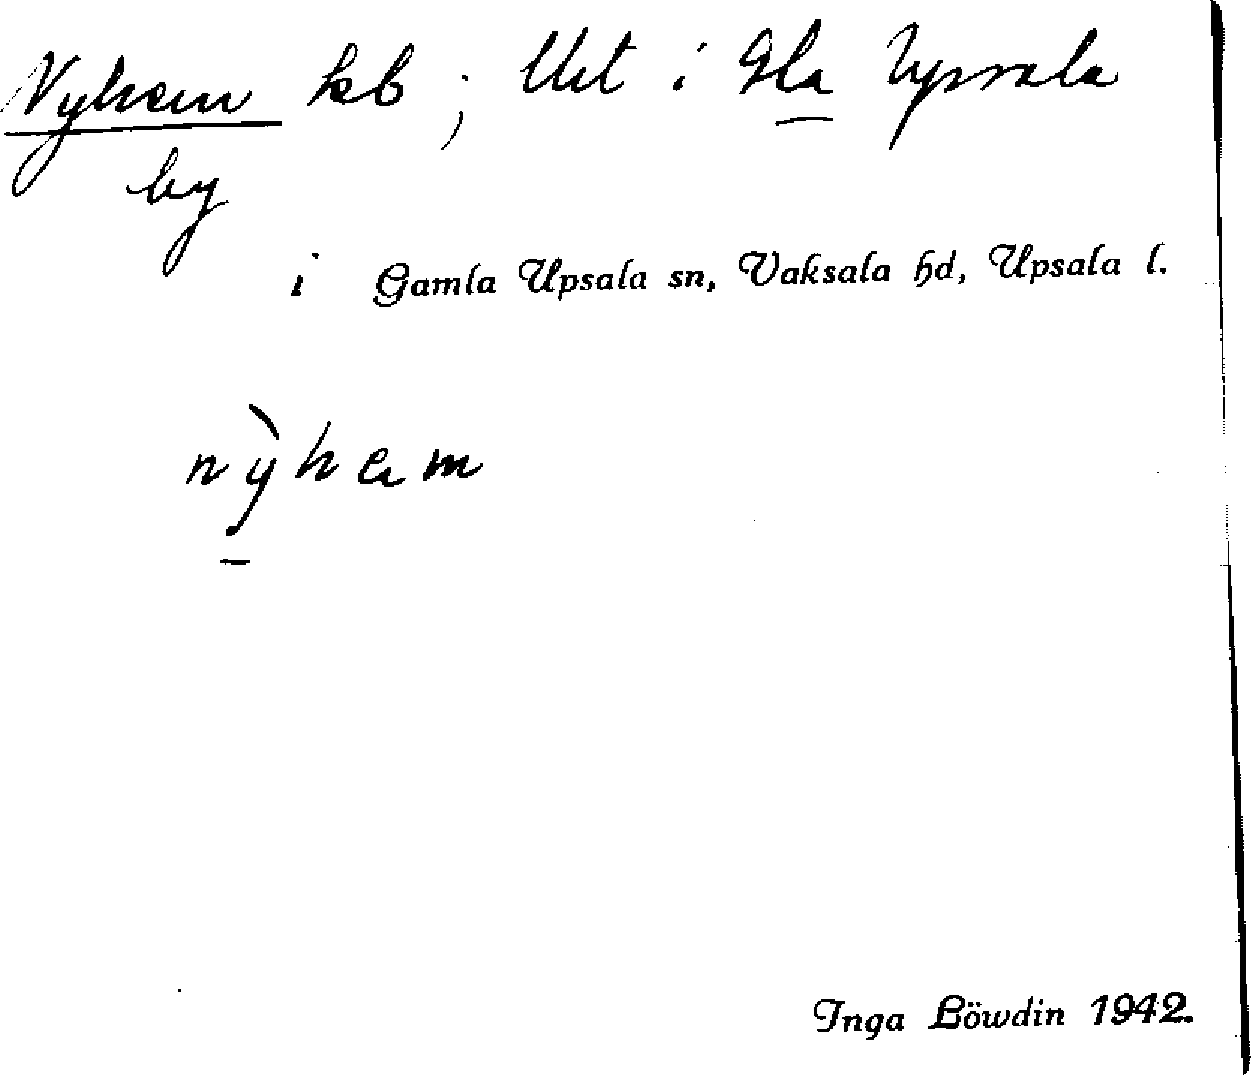 Nyhem kb; Ult i Gla Upsala
by
i Gamla Upsala sn, Vaksala hd, Upsala l.
nỳhem
Inga Löwdin 1942.